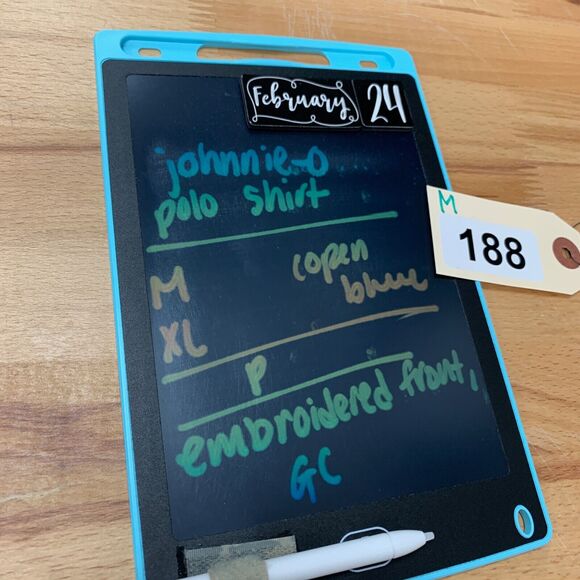 February 24
johnnie-O
polo shirt
M
188
M copen
XL blue
P
embroidered front,
GC